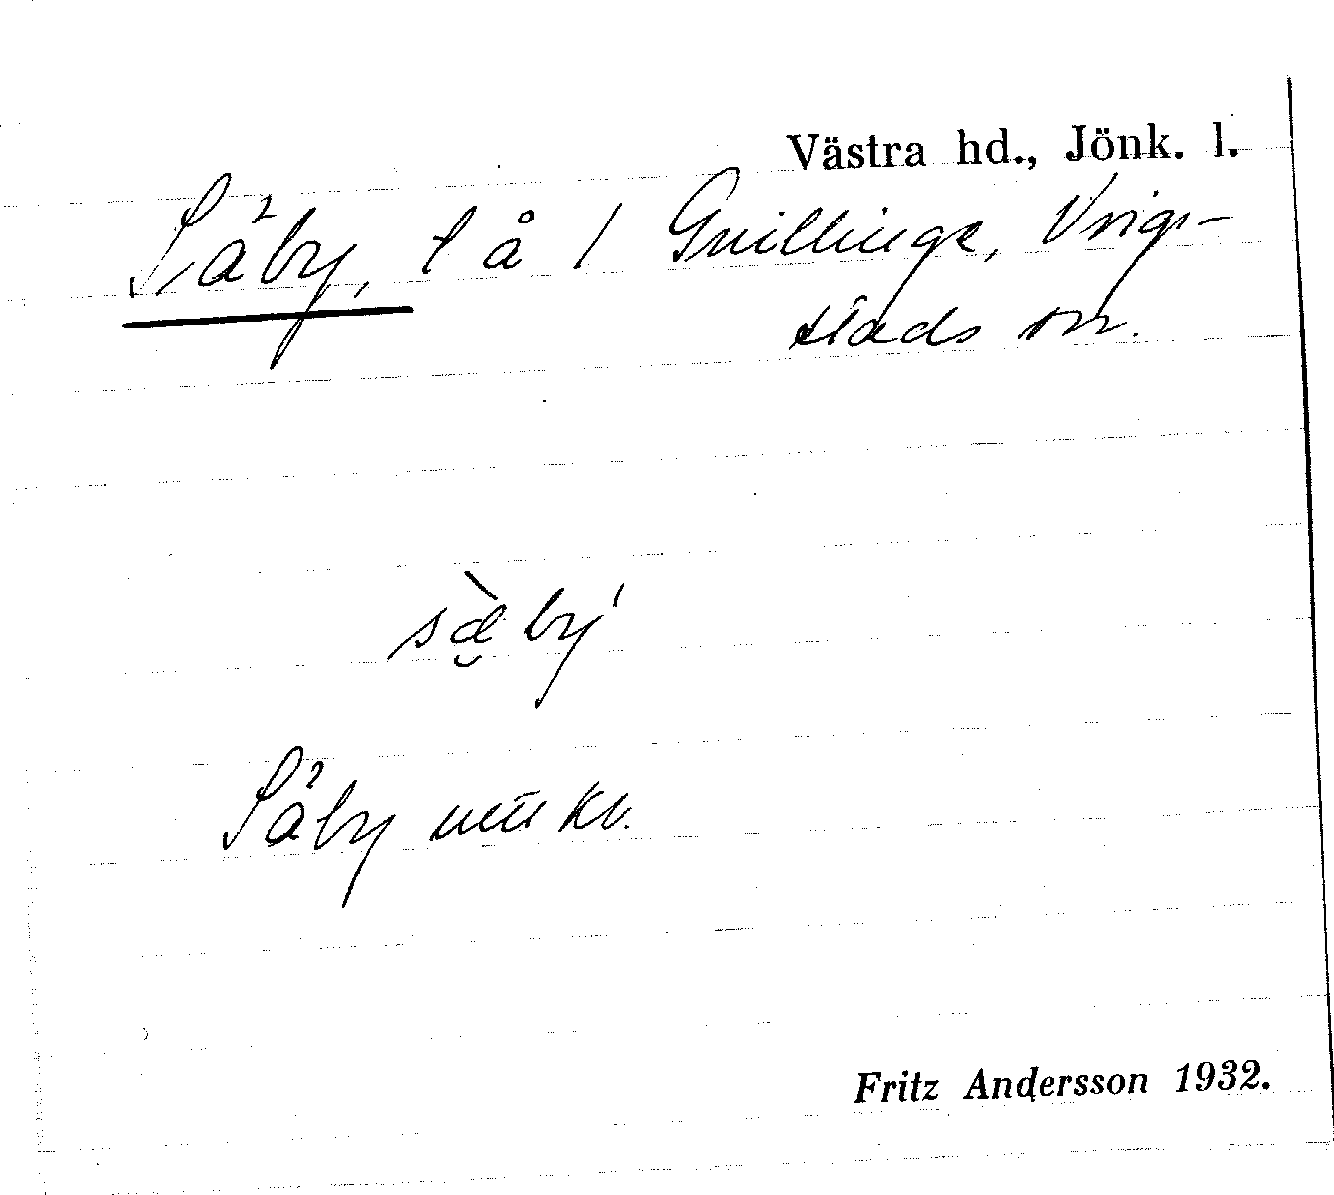 Västra hd., Jönk. l.
Säby, t å / Gnillinge, Vrig-
stads sn.
sæ̀bý
Säby mtl kv.
Fritz Andersson 1932.